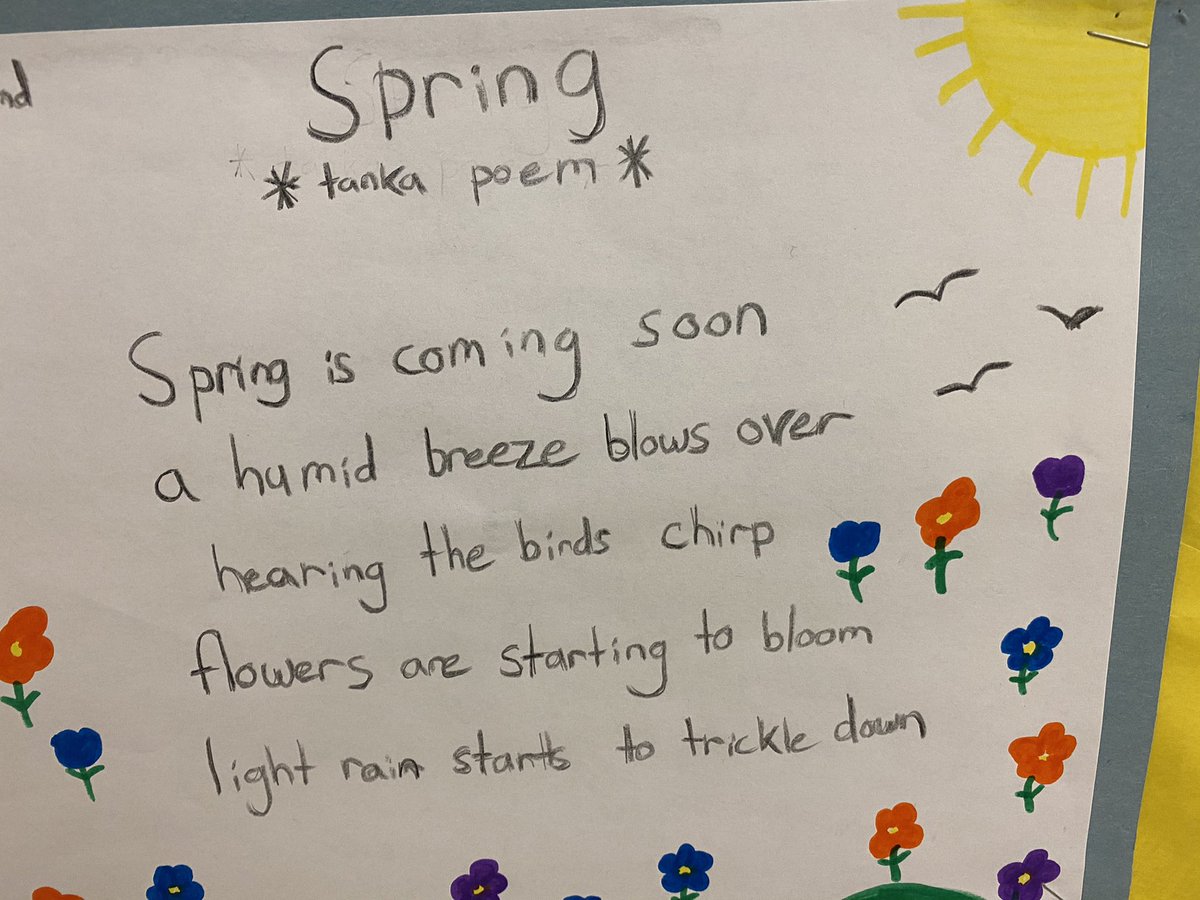 Spring
* tanka poem *
Spring is coming soon
a humid breeze blows over
hearing the birds chirp
flowers are starting to bloom
light rain starts to trickle down